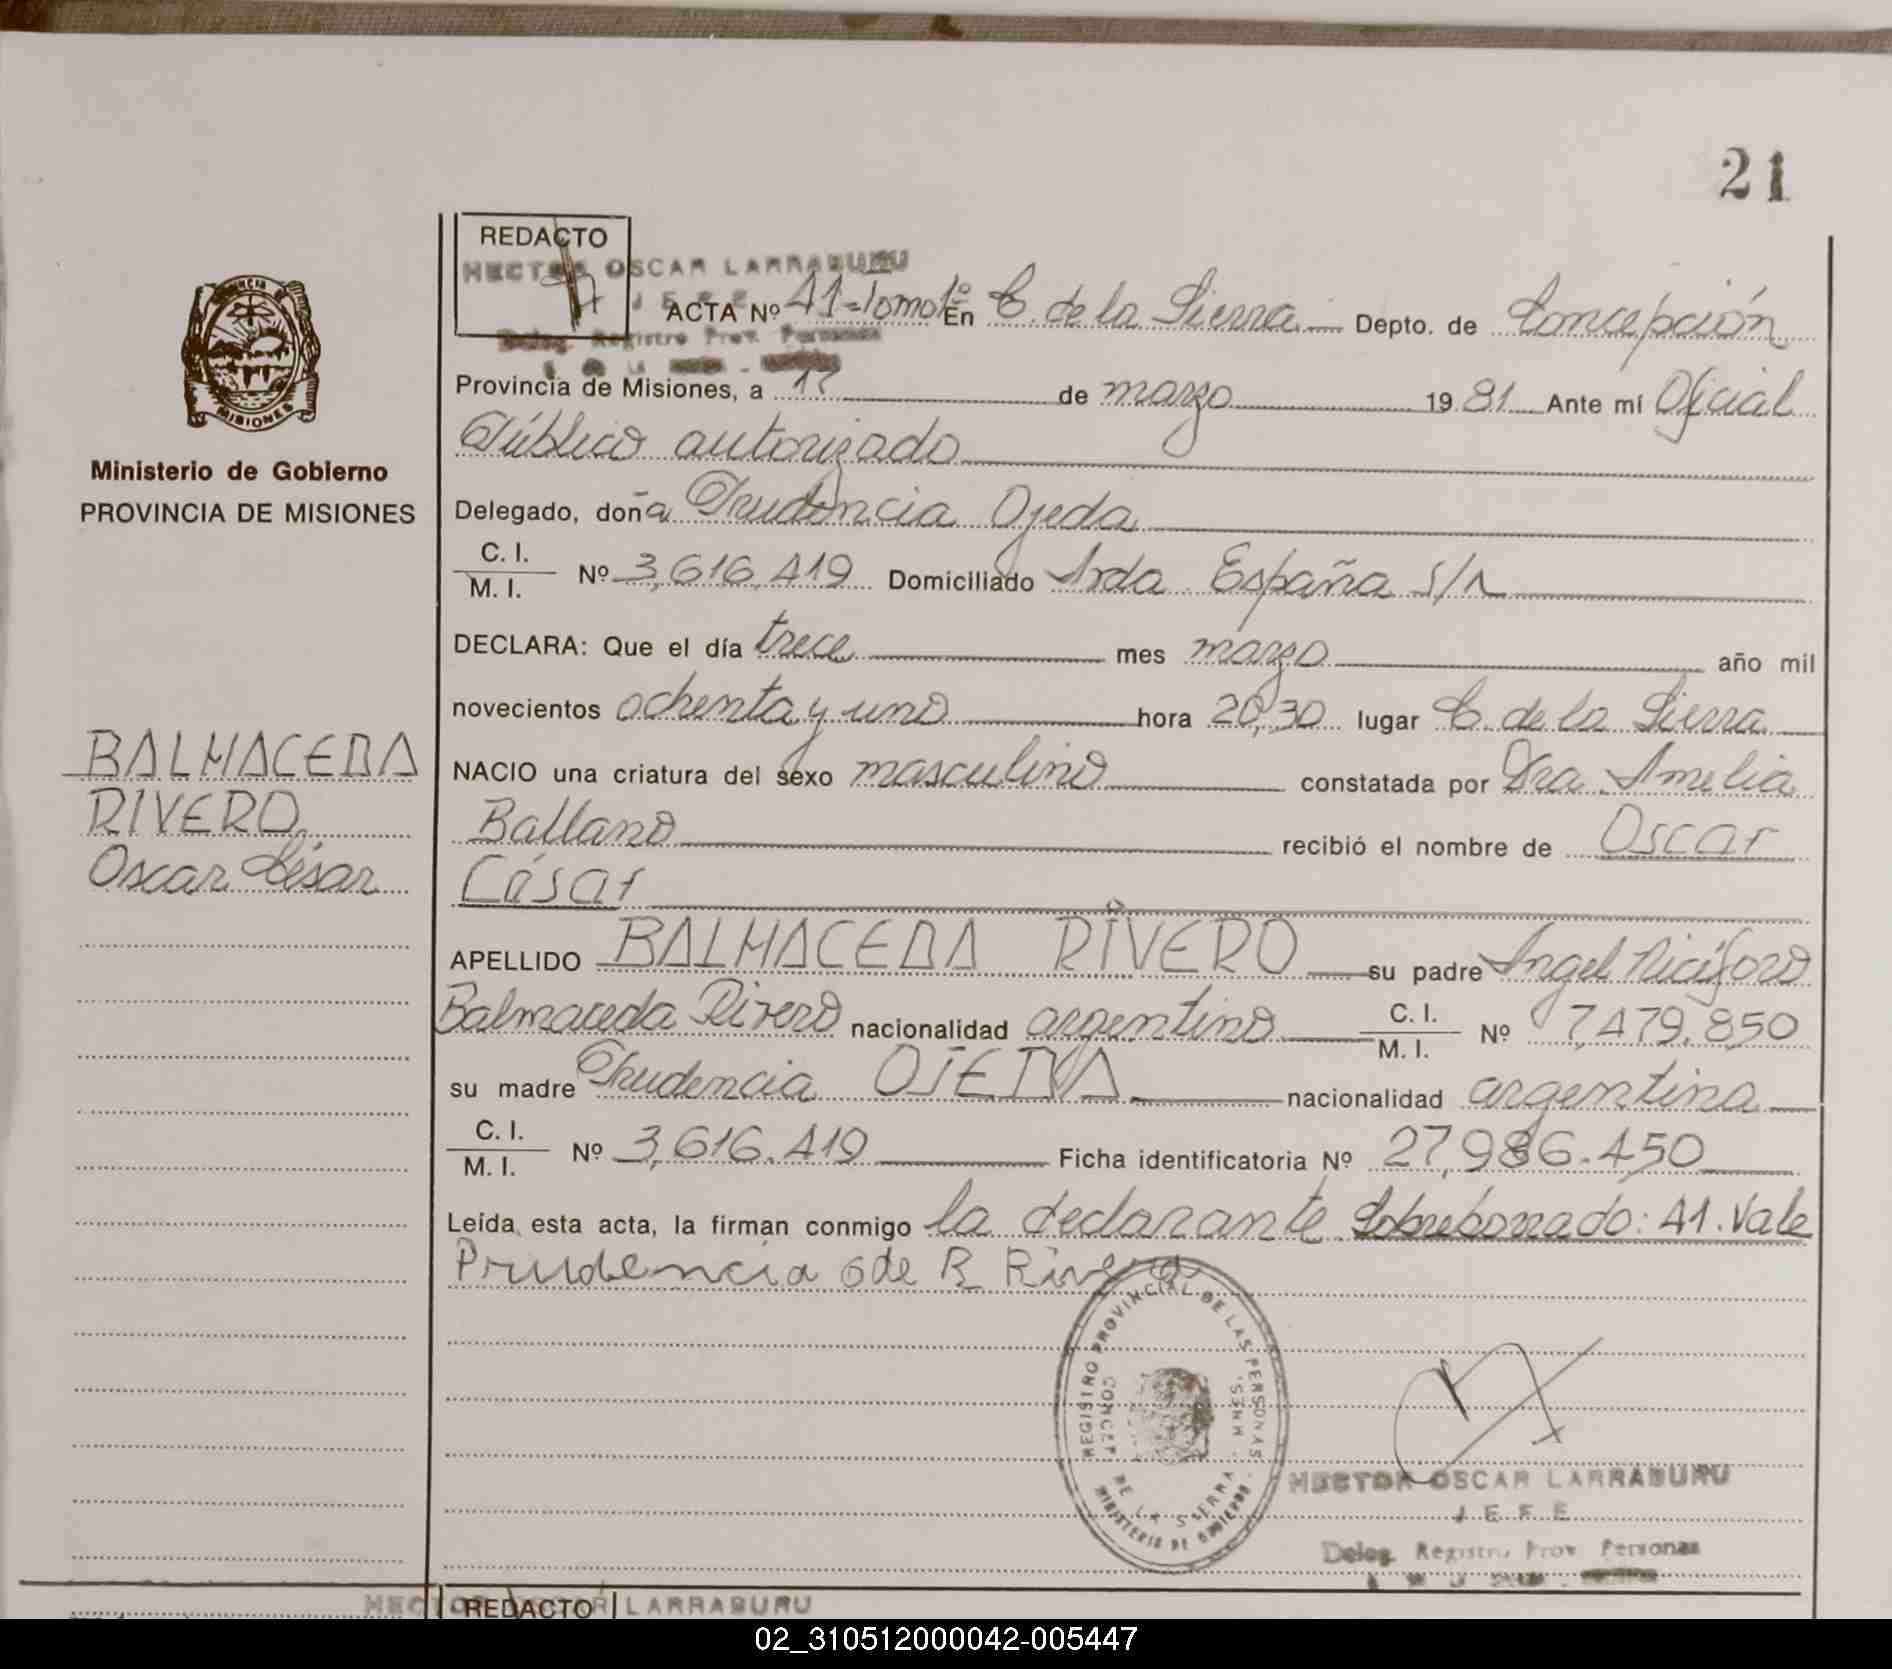 21
REDACTO
HECTOR OSCAR LARRABURU
JEFE
ACTA Nº 41=Tomo 1º En C. de la Sierra Depto. de Concepción
Deleg. Registro Prov. Personas
Provincia de Misiones, a de marzo 1981 Ante mí Oficial
Público autorizado
Delegado, doña Prudencia Ojeda
C. I.
M. I. Nº 3,616.419 Domiciliado Avda. España S/n
DECLARA: Que el día trece mes marzo año mil
novecientos ochenta y uno hora 20,30 lugar C. de la Sierra
NACIO una criatura del sexo masculino constatada por Dra. Amelia
Ballano recibió el nombre de Oscar
César
APELLIDO BALMACEDA RIVERO su padre Angel Nicíforo
Balmaceda Rivero nacionalidad argentino C. I.
M. I. Nº 7,479.850
su madre Prudencia OJEDA nacionalidad argentina
C. I.
M. I. Nº 3,616.419 Ficha identificatoria Nº 27,986.450
Leída esta acta, la firman conmigo la declarante. Sobreborrado: 41. Vale
Prudencia o de R
MISIONES
Ministerio de Gobierno
PROVINCIA DE MISIONES
BALMACEDA
RIVERO
Oscar César
REGISTRO PROVINCIAL DE LAS PERSONAS
CONCEP. DE LA SIERRA
MINISTERIO DE GOBIERNO
HECTOR OSCAR LARRABURU
JEFE
Deleg. Registro Prov. Personas
HECTOR OSCAR LARRABURU
REDACTO
02_310512000042-005447